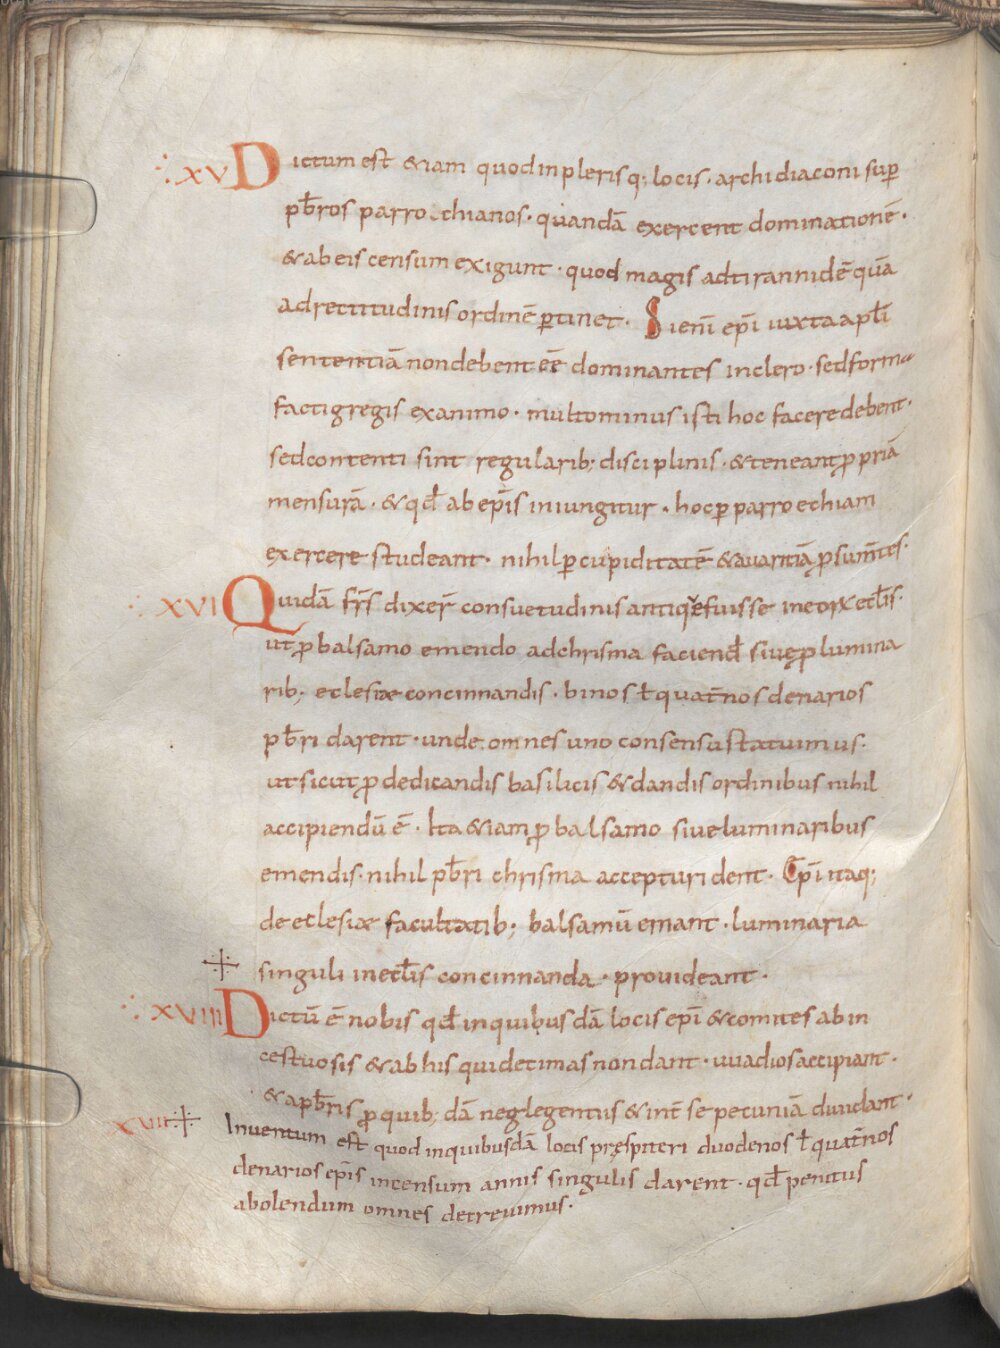 ∴ XV Dictum est &iam quod in plerisq; locis · archidiaconi sup̄
pb̄ros parrochianos · quandā exercent dominationē ·
& ab eis censum exigunt · quod magis ad tirannidē quā
ad rectitudinis ordinē ꝑtinet · Si eni̅ ep̄i iuxta apl̄i
sententiā non debent eē dominantes in clero · sed forma
facti gregis ex animo · multo minus isti hoc facere debent ·
sed contenti sint regularib; disciplinis · & teneant ꝓpriā
mensurā · & qd̄ ab ep̄is iniungitur · hoc ꝑ parroechiam
exercere studeant · nihil ꝑ cupiditatē & auaritiā p̱sum̄tes ·
∴ XVI Quidā fr̄s dixer̄ consuetudinis antiquę fuisse in eorx eccl̄is ·
ut ꝓ balsamo emendo ad chrisma faciend̄ siue ꝓ lumina
rib; eclesiæ concinnandis · binos ł quat̄nos denarios
pb̄ri darent · unde omnes uno consensu statuimus ·
ut sicut ꝓ dedicandis basilicis & dandis ordinibus nihil
accipiendū ē · Ita &iam ꝓ balsamo siue luminaribus
emendis · nihil pb̄ri chrisma accepturi dent · Ep̄i itaq;
de eclesiæ facultatib; balsamū emant · luminaria
singuli in eccl̄is concinnanda · prouideant ·
∴ XVIII Dictū ē nobis qd̄ in quibusdā locis ep̄i & comites ab in
cestuosis & ab his qui decimas non dant · uuadios accipiant ·
& a pb̄ris ꝓ quib;dā neglegentiis & int̄ se pecuniā diuidant ·
XVII Inuentum est quod in quibusdā locis pręspiteri duodenos ł quat̄nos
denarios ep̄is in censum annis singulis darent · qd̄ penitus
abolendum omnes decreuimus ·